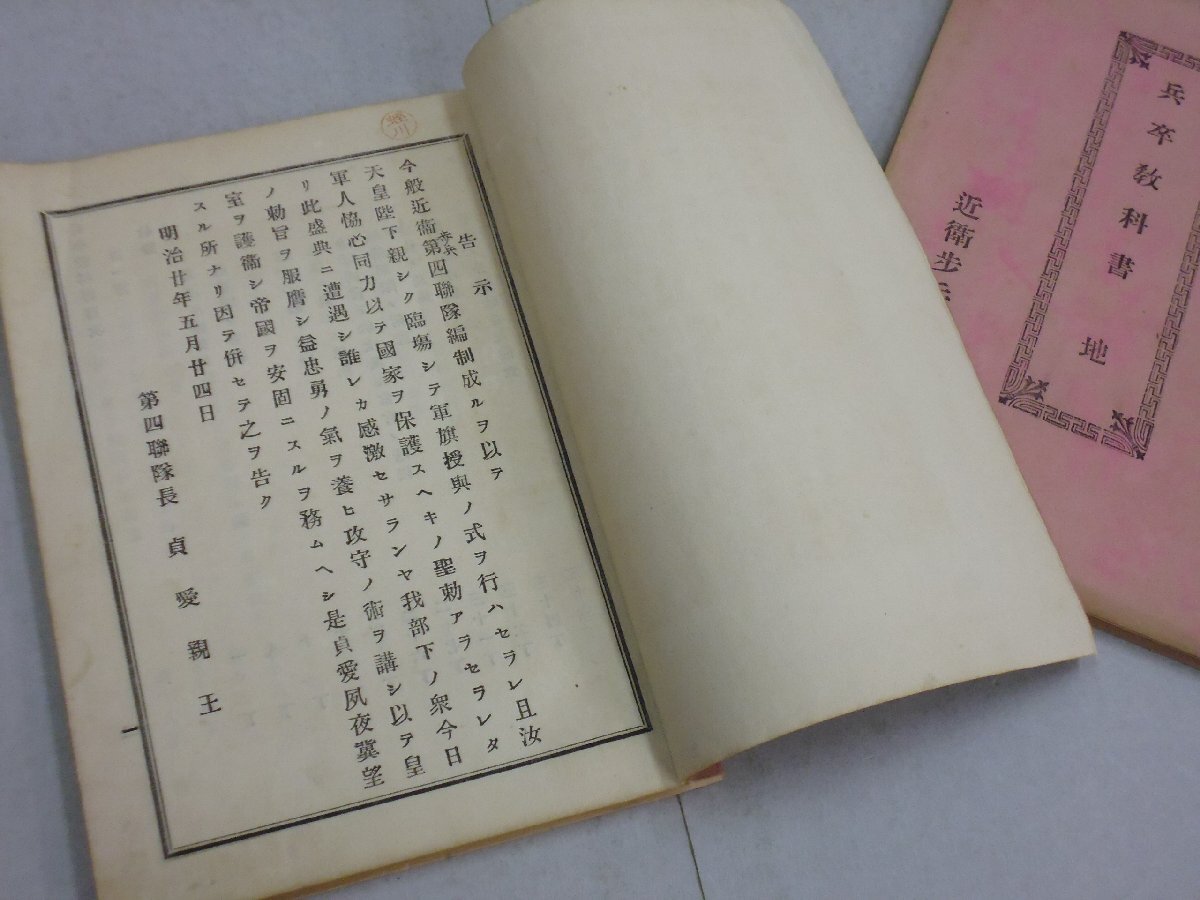 告示
今般近衞歩兵第四聯隊編制成ルヲ以テ
天皇陛下親シク臨塲シテ軍旗授與ノ式ヲ行ハセラレ且汝
軍人恊心同力以テ國家ヲ保護スヘキノ聖勅アラセラレタ
リ此盛典ニ遭遇シ誰レカ感激セサランヤ我部下ノ衆今日
ノ勅旨ヲ服膺シ益忠勇ノ氣ヲ養ヒ攻守ノ術ヲ講シ以テ皇
室ヲ護衞シ帝國ヲ安固ニスルヲ務ムヘシ是貞愛夙夜冀望
スル所ナリ因テ併セテ之ヲ告ク
明治廿年五月廿四日
第四聯隊長 貞愛親王
兵卒教科書 地
近衛歩兵